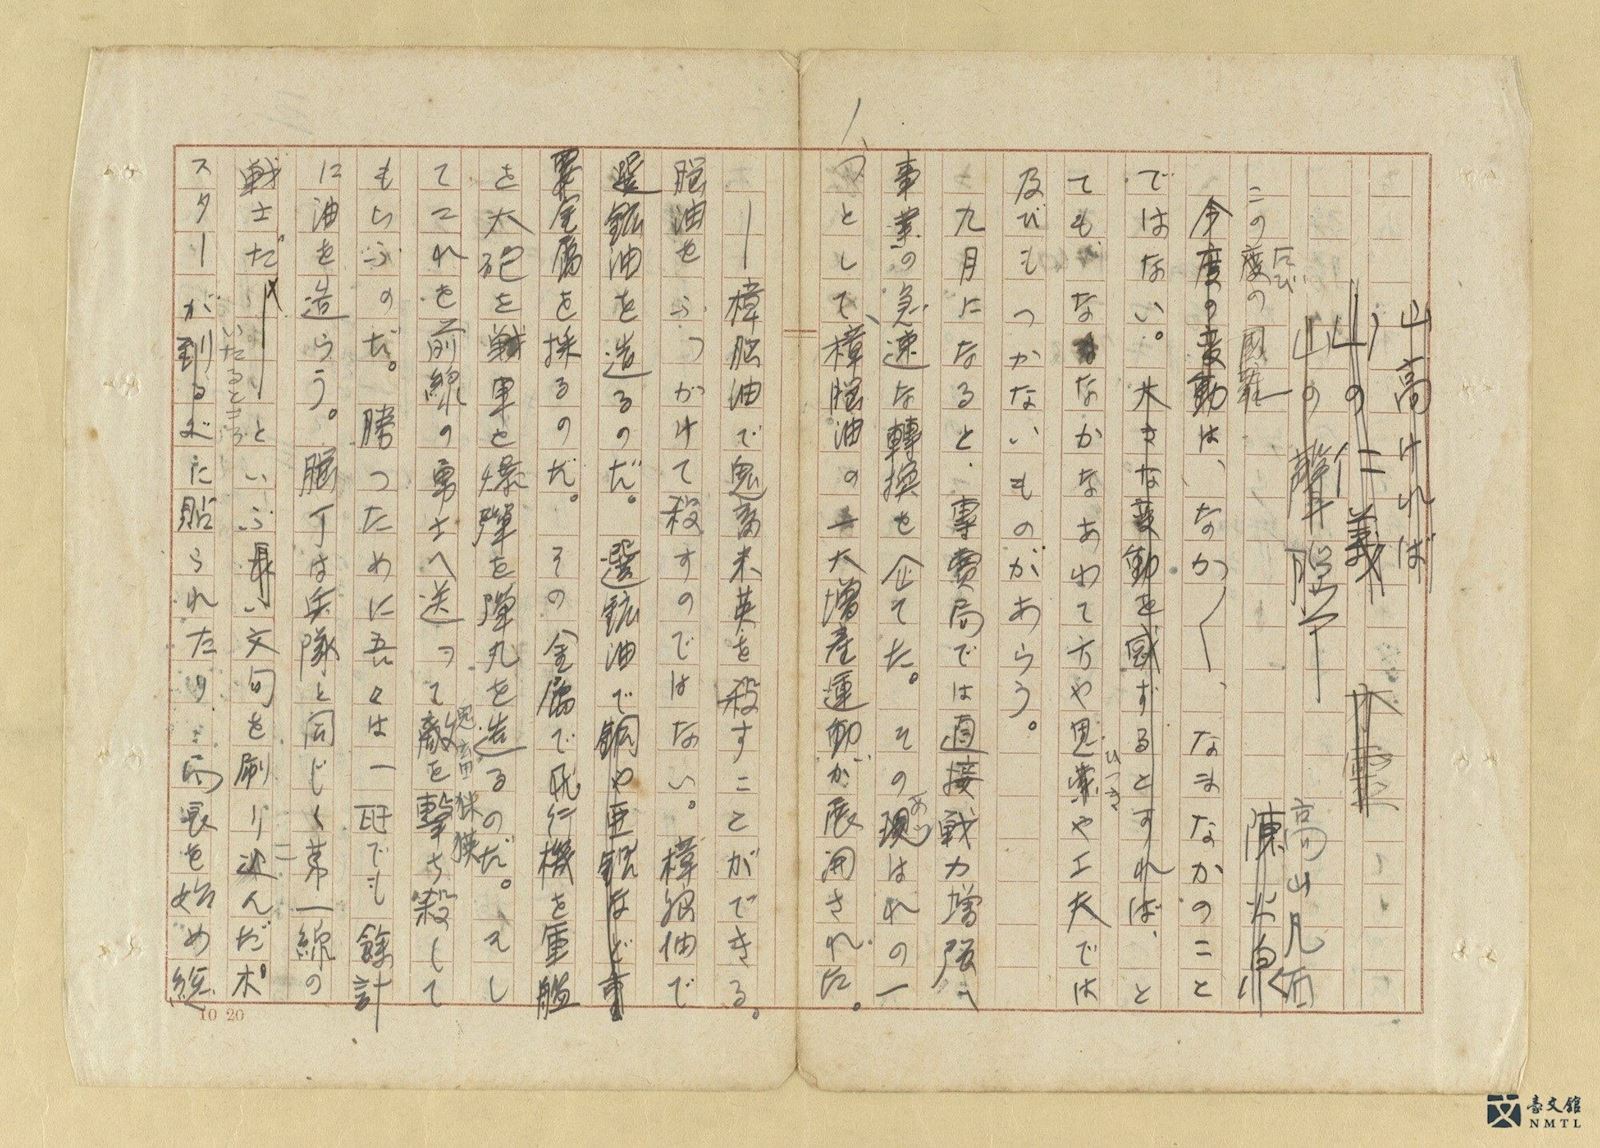 山高ければ
山の仁義
山の聲
高山凡石
陳火泉
この度の國難
たび
今度の変動は、なか〳〵、なまなかのこと
ではない。大きな変動を感ずるとすれば、と
ても、なかなかなあわて方や思案や工夫では
及びもつかないものがあらう。
九月になると、專賣局では直接戦力増強へ
事業の急速な轉換を企てた。その現はれの一
あら
つとして、樟脳油の一大増産運動が展開された。
――樟脳油で鬼畜米英を殺すことができる。
脳油をぶつかけて殺すのではない。樟脳油で
選鉱油を造るのだ。選鉱油で銅や亜鉛など重
要金属を採るのだ。その金属で飛行機を軍艦
を大砲を戦車と爆弾を弾丸を造るのだ。そし
てこれを前線の勇士へ送って敵を撃ち殺して
鬼畜
もらふのだ。勝つために吾々は一瓩でも餘計
に油を造らう。脳丁は兵隊と同じく第一線の
戦士だ――といふ長い文句を刷り込んだポ
いたるところ
スターが到るところに貼られたり、馬県を始め
10 20
臺文館
NMTL